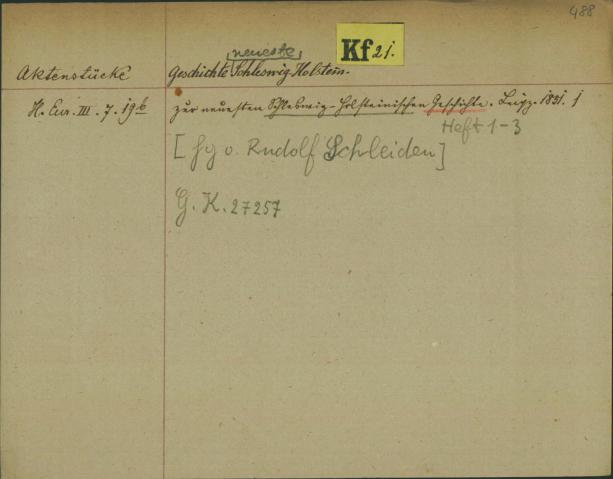 488
neueste
Kf 21.
Aktenstücke Geschichte Schleswig Holstein.
H. Eur. III. 7. 19b zur neuesten Schleswig-Holsteinischen Geschichte. Leipz. 1851. j
Heft 1-3
[hg v. Rudolf Schleiden]
G. K. 27257